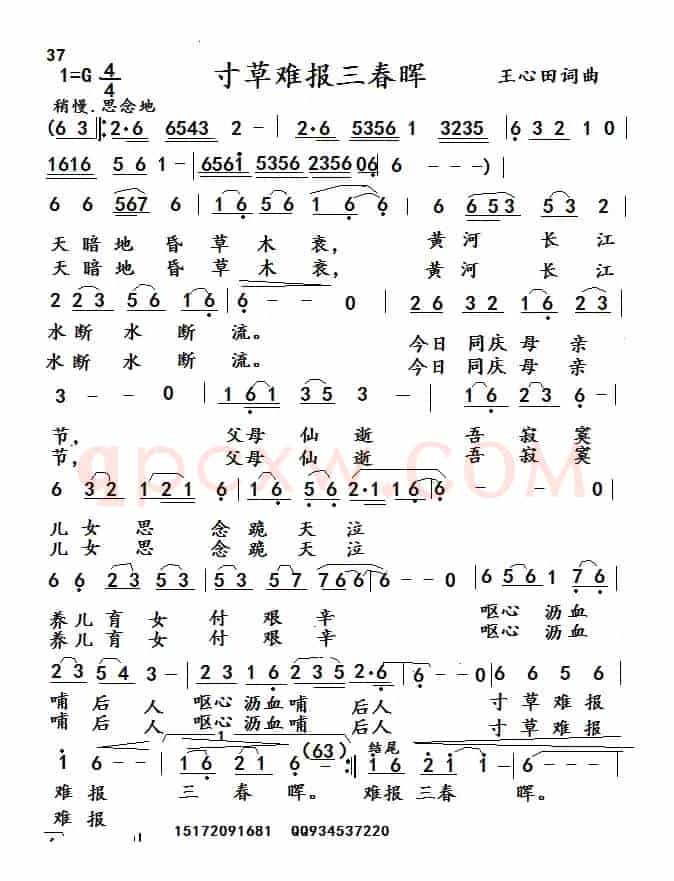 37
1=G 4/4 寸草难报三春晖 王心田词曲
稍慢.思念地
(6 3 ‖: 2·6 6543 2 - | 2·6 5356 1 3235 | 6 3 2 1 0 |
1616 5 6 1 - | 6561 5356 2356 06 | 6 - - -) |
6 6 567 6 | 1 6 5 6 1 6 6 | 6 6 5 3 5 3 2 |
天暗地昏草木衰, 黄河长江
天暗地昏草木衰, 黄河长江
2 2 3 5 6 1 6 | 6 - - 0 | 2 6 3 2 1 6 2 3 |
水断水断流。 今日同庆母亲
水断水断流。 今日同庆母亲
3 - - 0 | 1 6 1 3 5 3 | 1 6 2 3 6 - |
节, 父母仙逝 吾寂寞
节, 父母仙逝 吾寂寞
6 3 2 1 2 1 | 1 6 5 6 2·1 1 6 6 | 6 - - 0 |
儿女思念跪天泣
儿女思念跪天泣
6 6 2 3 5 3 | 5 3 5 7 7 6 6 | 6 - - 0 | 6 5 6 1 7 6 |
养儿育女付艰辛 呕心沥血
养儿育女付艰辛 呕心沥血
2 3 5 4 3 - | 2 2 3 1 6 2 3 5 2·6 | 6 - - 0 | 6 6 5 6 |
哺后人 呕心沥血哺后人 寸草难报
哺后人 呕心沥血哺后人 寸草难报
1
(63) 结尾
1 6 - - | 1 6 1 2 1 6 - :‖ 1 6 2 1 1 | 6 - - - ‖
难报三春晖。难报三春晖。
难报
15172091681 QQ934537220
qpcxw.COM